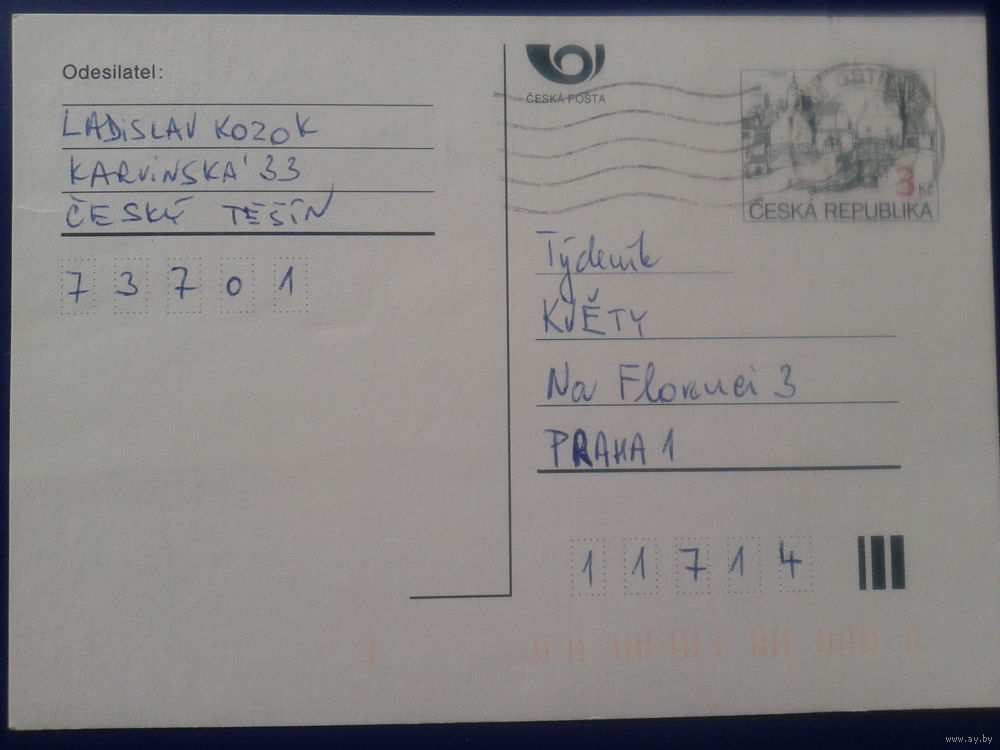 Odesilatel:
LADISLAV KOZOK
KARVINSKÁ 33
ČESKÝ TĚŠÍN
73701
ČESKÁ POŠTA
3 Kč
ČESKÁ REPUBLIKA
Týdeník
KVĚTY
Na Florenci 3
PRAHA 1
11714
www.ay.by